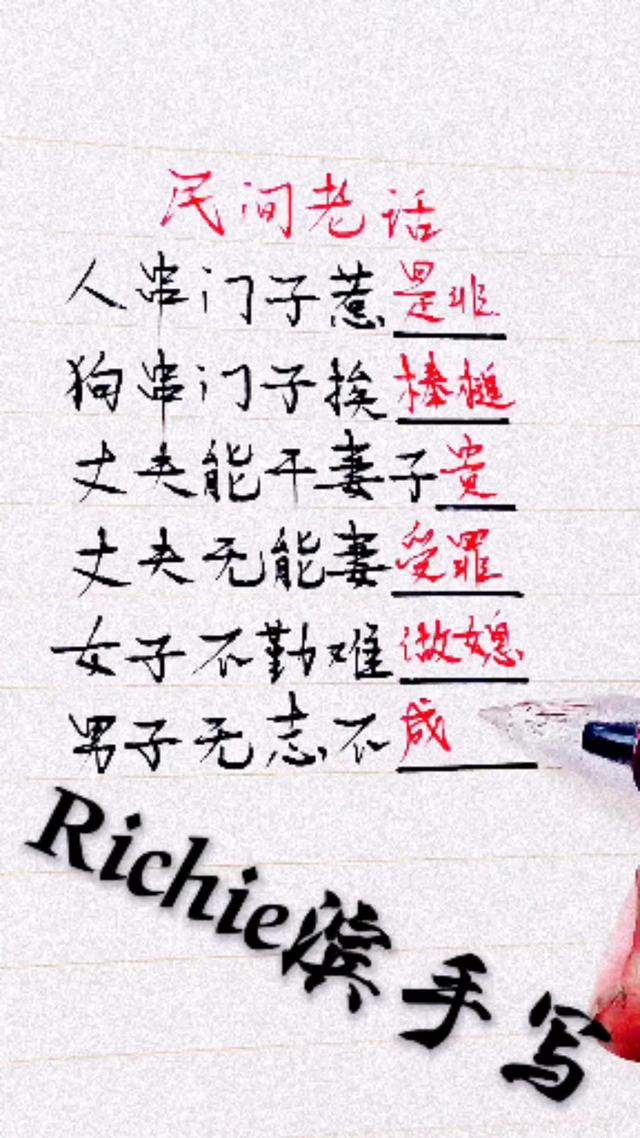 民间老话
人串门子惹是非
狗串门子挨棒槌
丈夫能干妻子贵
丈夫无能妻受罪
女子不勤难做媳
男子无志不成
Richie滨手写